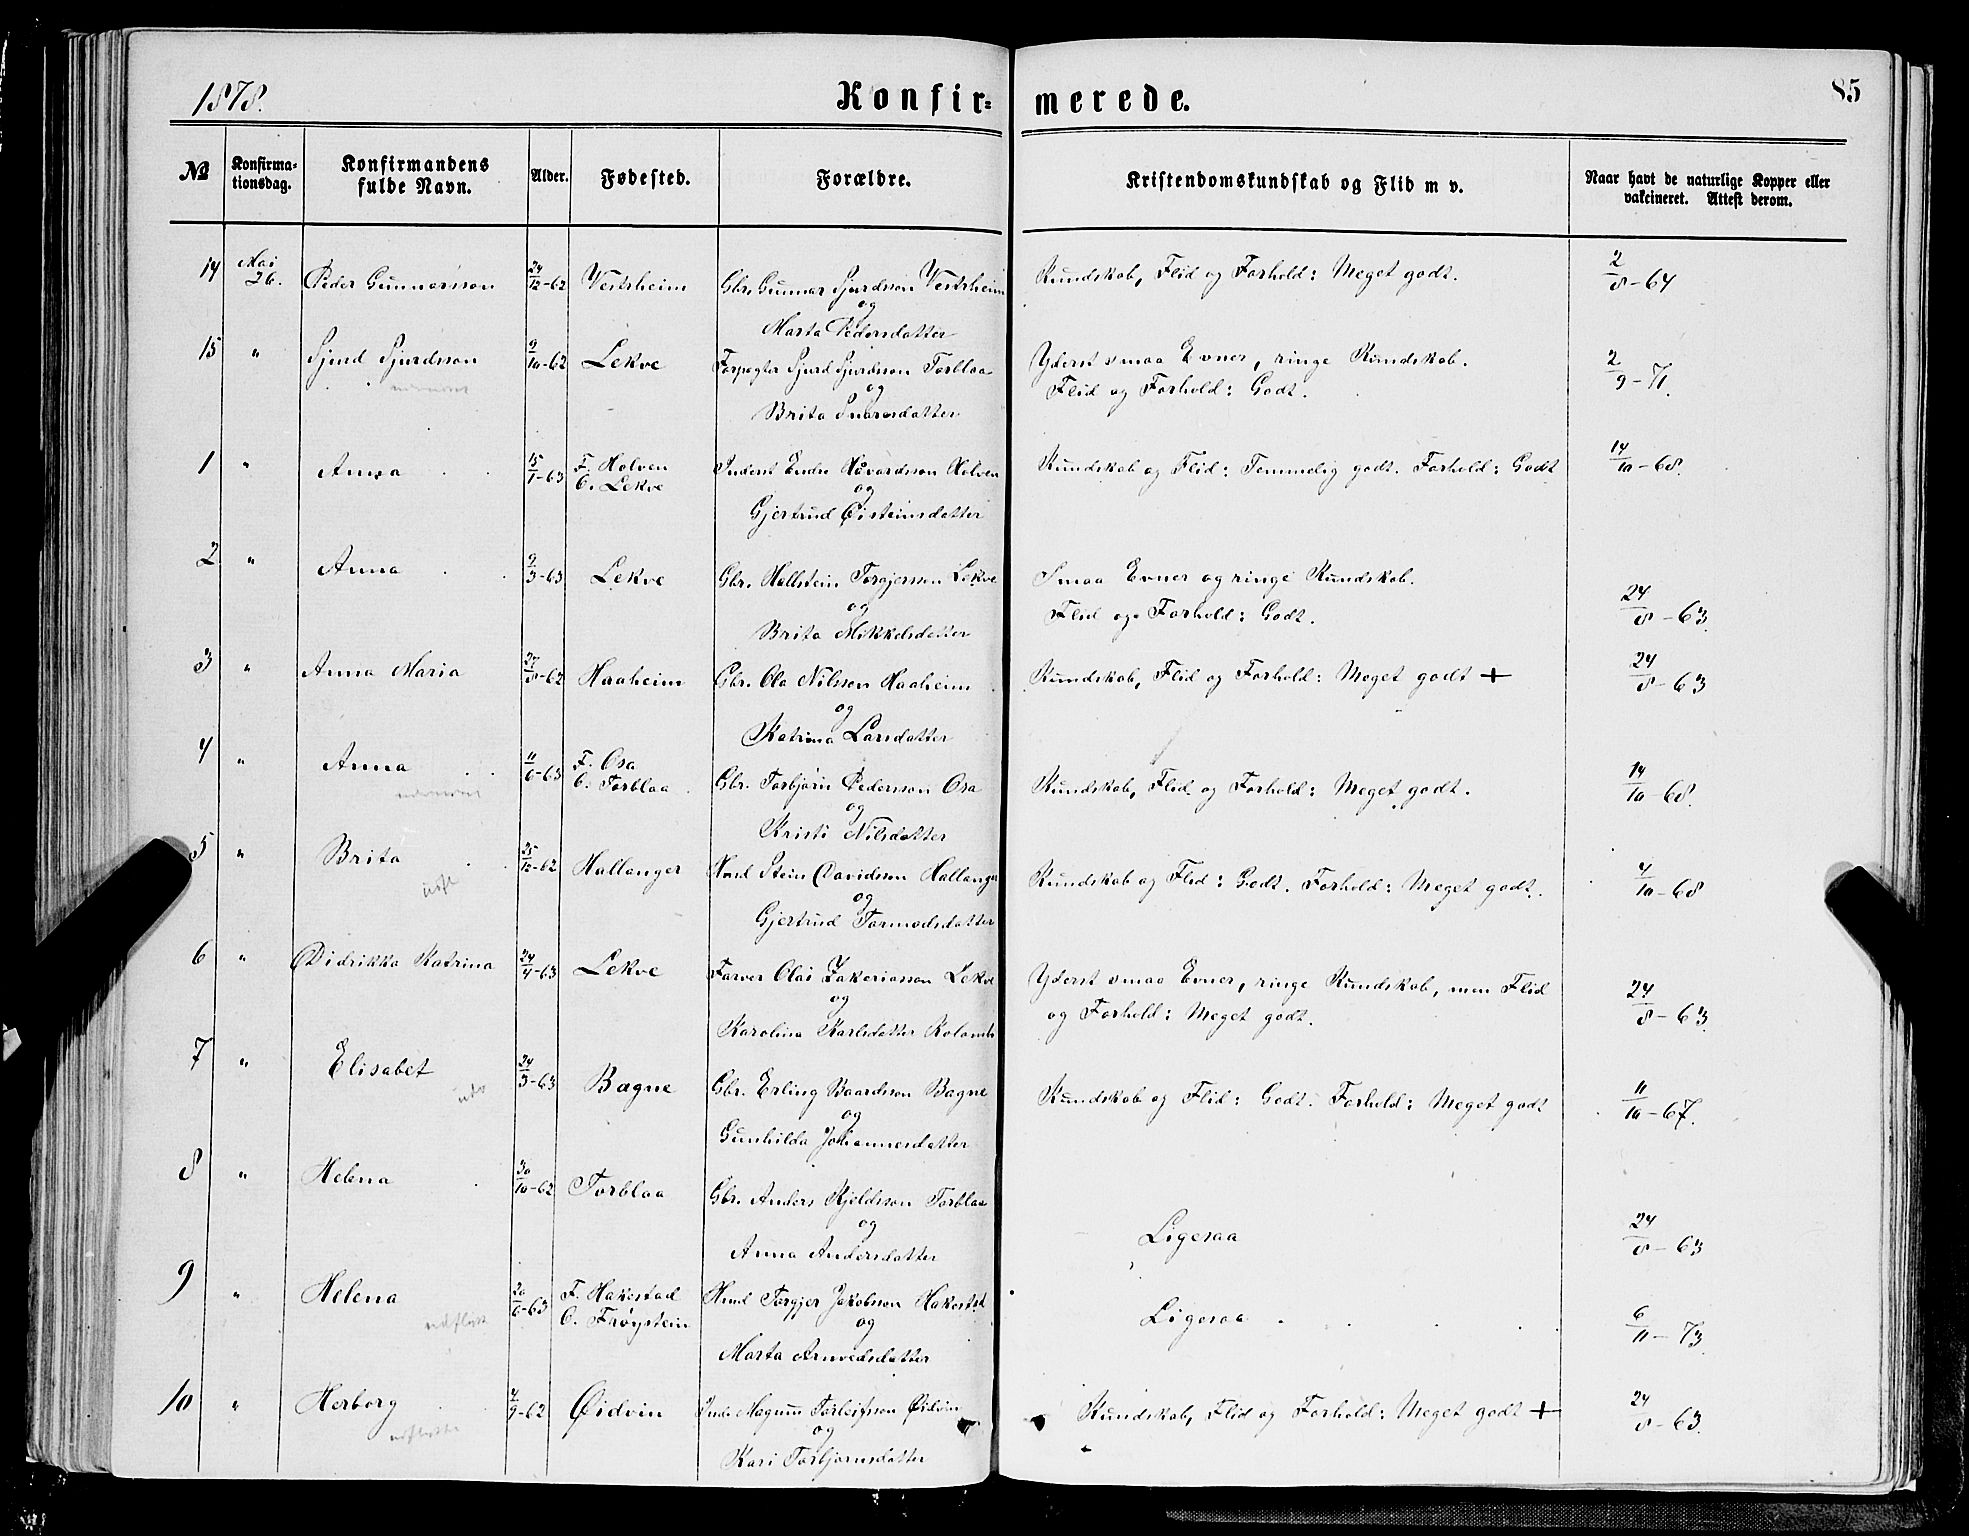 1878.
Konfir=
merede.
85
№
Konfirma=
tionsdag.
Konfirmandens
fulde Navn.
Alder.
Fødested.
Forældre.
Kristendomskundskab og Flid m v.
Naar havt de naturlige Kopper eller
vakcineret. Attest derom.
14 Mai 26. Peder Gunnarsson 24/12-62 Vestrheim Gbr. Gunnar Sjurdsson Vestrheim Kundskab, Flid og Forhold: Meget godt. 2/8-64
og
Marta Pedersdatter
15 " Sjurd Sjurdsson 9/10-62 Lekve Forpagter Sjurd Sjurdsson Torblaa Yderst smaa Evner, ringe Kundskab. 2/9-71.
og
Flid og Forhold: Godt.
Brita Ivarsdatter
1 " Anna 15/1-63 F. Holven Inderst Endre Håvardsson Holven Kundskab og Flid: Temmelig godt. Forhold: Godt 14/10-68.
O. Lekve
og
Gjertrud Øisteinsdatter
2 " Anna 9/3-63 Lekve Gbr. Hallstein Torgjersson Lekve Smaa Evner og ringe Kundskab.
og
Flid og Forhold: Godt. 24/8-63.
Brita Mikkelsdatter
3 " Anna Maria 27/8-62 Haaheim Gbr. Ola Nilsson Haaheim Kundskab, Flid og Forhold: Meget godt + 24/8-63
og
Katrina Larsdatter
4 " Anna 11/6-63 F. Osa
O. Torblaa Gbr. Torbjørn Pedersson Osa Kundskab, Flid og Forhold: Meget godt. 14/10-68.
og
Kristi Nilsdatter
5 " Brita 25/12-62 Hallanger Hmd Stein Davidsson Hallanger Kundskab og Flid: Godt. Forhold: Meget godt. 4/10-68
og
Gjertrud Tormodsdatter
6 " Didrikka Katrina 24/4-63 Lekve Farver Olai Zakeriasson Lekve Yderst smaa Evner, ringe Kundskab, men Flid 24/8-63.
og
og Forhold: Meget godt.
Karolina Karlsdatter
7 " Elisabet 24/3-63 Bagne Gbr. Erling Baardsson Bagne Kundskab og Flid: Godt. Forhold: Meget godt 11/10-67.
og
Gunhilda Johannesdatter
8 " Helena 30/10-62 Torblaa Gbr. Anders Kjeldsson Torblaa
og
Ligesaa 24/8-63
Anna Andersdatter
9 " Helena 20/6-63 F. Hakestad Hmd Torgjer Jakobson Hakestad
O. Frøystein
udflytt
og
Ligesaa 6/11-73
Marta Arnvedsdatter
10 " Herborg 4/9-62 Øidvin Magnus Torleifsson Øidvin Kundskab, Flid og Forhold: Meget godt + 24/8-63.
og
Kari Torbjørnsdatter